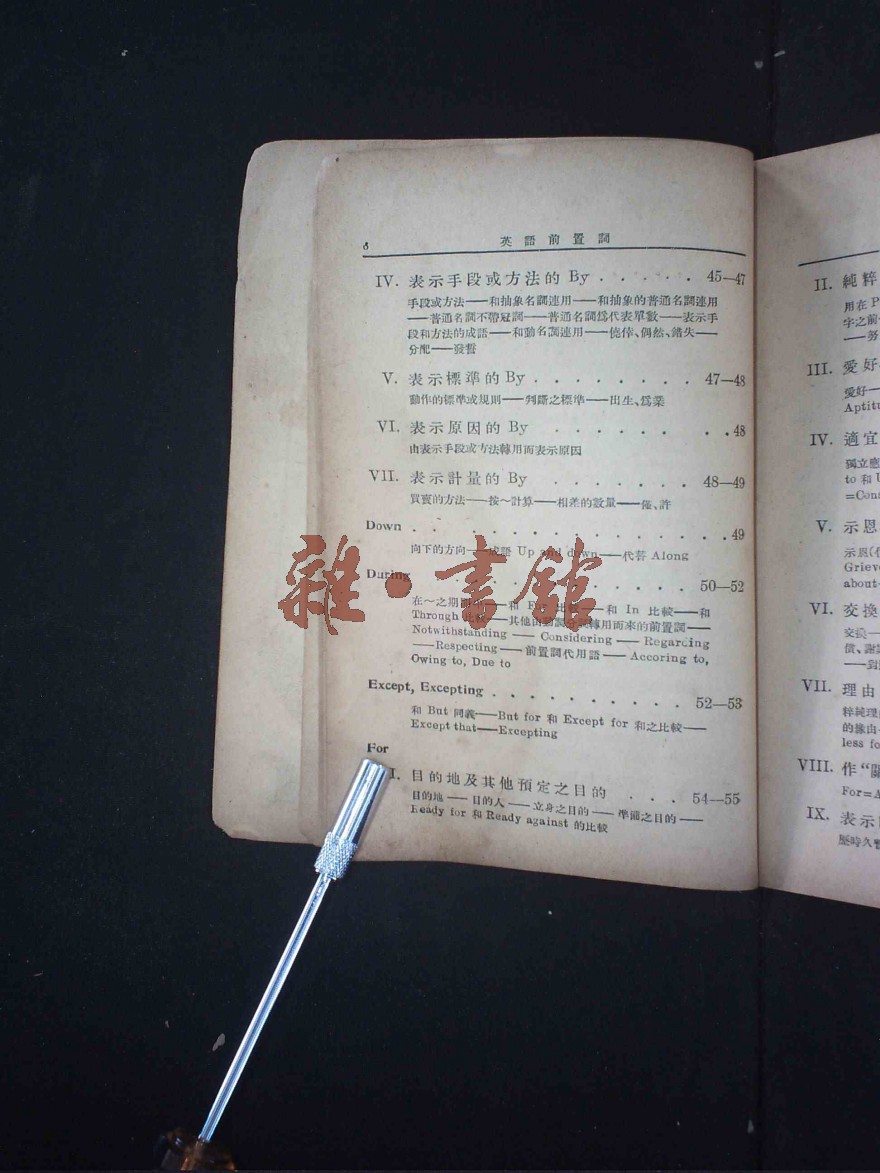 6
英語前置詞
IV. 表示手段或方法的 By . . . . . 45—47
手段或方法——和抽象名詞連用——和抽象的普通名詞連用
——普通名詞不帶冠詞——普通名詞爲代表單數——表示手
段和方法的成語——和動名詞連用——僥倖、偶然、錯失——
分配——發誓
V. 表示標準的 By . . . . . . . . 47—48
動作的標準或規則——判斷之標準——出生、爲業
VI. 表示原因的 By . . . . . . . 48
由表示手段或方法轉用而表示原因
VII. 表示計量的 By . . . . . . . 48—49
買賣的方法——按～計算——相差的數量——僅、許
Down . . . . . . . . . . . . . . . 49
向下的方向——成語 Up and down——代替 Along
During . . . . . . . . . . . . 50—52
在～之期間中——和 For 比較——和 In 比較——和
Through 比較——其他由動詞分詞轉用而來的前置詞——
Notwithstanding —— Considering —— Regarding
——Respecting——前置詞代用語——Accoring to,
Owing to, Due to
Except, Excepting . . . . . . . . . . . 52—53
和 But 同義——But for 和 Except for 和之比較——
Except that——Excepting
For
I. 目的地及其他預定之目的 . . . 54—55
目的地——目的人——立身之目的——準備之目的——
Ready for 和 Ready against 的比較
II. 純粹
用在 P
字之前
——努
III. 愛好
愛好——
Aptitu
IV. 適宜
獨立應
to 和 U
=Cons
V. 示恩
示恩(
Grieve
about
VI. 交換
交換——
償、謝
——對
VII. 理由
粹純理
的緣由
less fo
VIII. 作“關
For=A
IX. 表示
歷時久暫
雜·書館